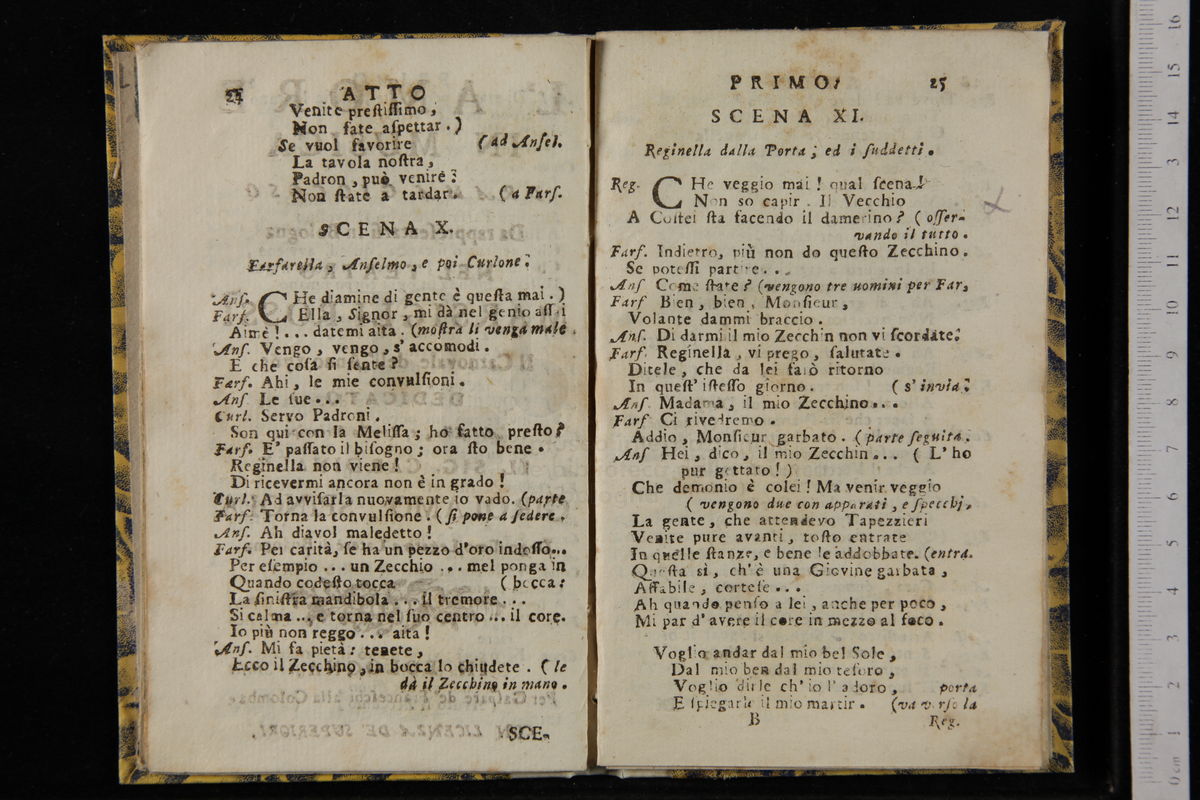 24 ATTO
Venite prestissimo,
Non fate aspettar.)
Se vuol favorire (ad Ansel.
La tavola nostra,
Padron, può venire:
Non state a tardar. (a Farf.
SCENA X.
Farfarella, Anselmo, e poi Curlone.
Ans. CHe diamine di gente è questa mai.)
Farf. Ella, Signor, mi dà nel genio assai
Aimè!... datemi aita. (mostra li venga male.
Ans. Vengo, vengo, s'accomodi.
E che cosa si sente?
Farf. Ahi, le mie convulsioni.
Ans. Le sue...
Curl. Servo Padroni.
Son qui con la Melissa; ho fatto presto?
Farf. E' passato il bisogno; ora sto bene.
Reginella non viene!
Di ricevermi ancora non è in grado!
Curl. Ad avvisarla nuovamente io vado. (parte
Farf. Torna la convulsione. (si pone a sedere.
Ans. Ah diavol maledetto!
Farf. Per carità, se ha un pezzo d'oro indosso...
Per esempio... un Zecchio... mel ponga in
Quando codesto tocca (bocca:
La sinistra mandibola... il tremore...
Si calma... e torna nel suo centro... il core.
Io più non reggo... aita!
Ans. Mi fa pietà: tenete,
Ecco il Zecchino, in bocca lo chiudete. (le
dà il Zecchino in mano.
SCE-
PRIMO. 25
SCENA XI.
Reginella dalla Porta; ed i suddetti.
Reg. CHe veggio mai! qual scena!
Non so capir. Il Vecchio
A Costei sta facendo il damerino? (osser-
vando il tutto.
Farf. Indietro, più non do questo Zecchino.
Se potessi partire...
Ans Come state? (vengono tre uomini per Far,
Farf Bien, bien, Monsieur,
Volante dammi braccio.
Ans. Di darmi il mio Zecchin non vi scordate.
Farf. Reginella, vi prego, salutate.
Ditele, che da lei farò ritorno
In quest' istesso giorno. (s'invia.
Ans. Madama, il mio Zecchino...
Farf Ci rivedremo.
Addio, Monsieur garbato. (parte seguita.
Ans Hei, dico, il mio Zecchin... (L'ho
pur gettato!)
Che demonio è colei! Ma venir veggio
(vengono due con apparati, e specchj,
La gente, che attendevo Tapezzieri
Venite pure avanti, tosto entrate
In quelle stanze, e bene le addobbate. (entra.
Questa sì, ch'è una Giovine garbata,
Affabile, cortese...
Ah quando penso a lei, anche per poco,
Mi par d'avere il core in mezzo al foco.
Voglio andar dal mio bel Sole,
Dal mio ben dal mio tesoro,
Voglio dirle ch'io l'adoro, porta
E spiegarle il mio martir. (va verso la
B Reg.